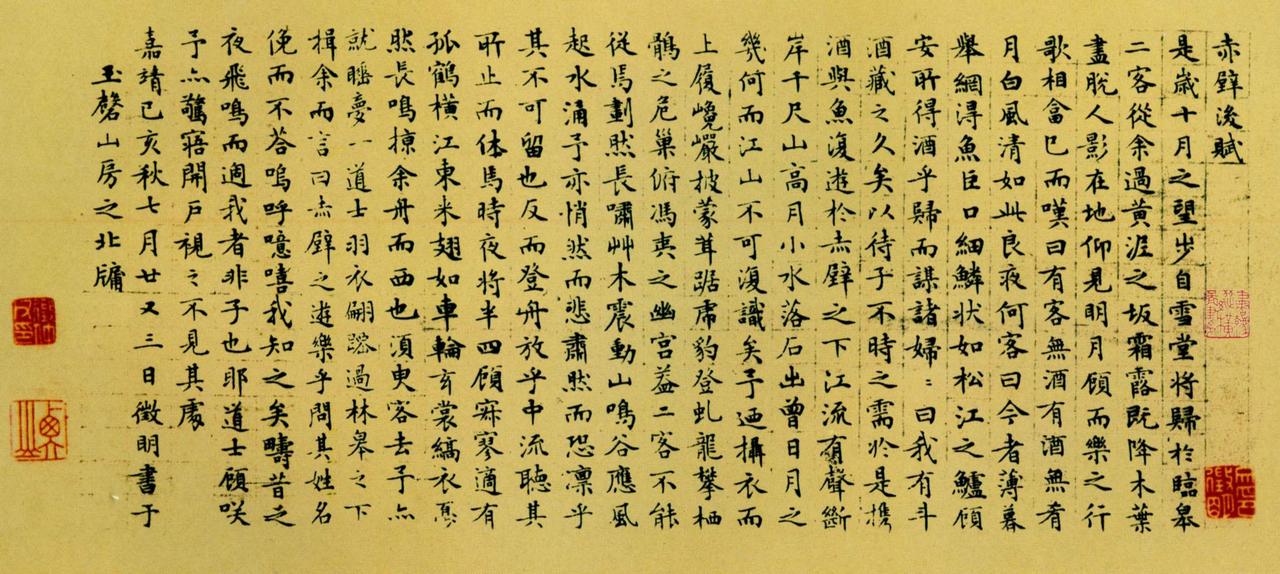 赤壁後賦
是歲十月之望步自雪堂將歸於臨皋
二客從余過黃涯之坂霜露既降木葉
盡脫人影在地仰見明月顧而樂之行
歌相畣已而嘆曰有客無酒有酒無肴
月白風清如此良夜何客曰今者薄暮
舉網得魚巨口細鱗狀如松江之鱸顧
安所得酒乎歸而謀諸婦〻曰我有斗
酒藏之久矣以待子不時之需於是攜
酒與魚復遊於赤壁之下江流有聲斷
岸千尺山高月小水落石出曾日月之
幾何而江山不可復識矣予迺攝衣而
上履巉巖披蒙茸踞虎豹登虬龍攀栖
鶻之危巢俯馮夷之幽宮葢二客不能
從焉劃然長嘯艸木震動山鳴谷應風
起水涌予亦悄然而悲肅然而恐凛乎
其不可留也反而登舟放乎中流聽其
所止而休焉時夜將半四顧寂寥適有
孤鶴橫江東来翅如車輪玄裳縞衣戛
然長鳴掠余舟而西也須臾客去予亦
就睡夢一道士羽衣翩躚過林皋之下
揖余而言曰赤壁之遊樂乎問其姓名
俛而不荅嗚呼噫嘻我知之矣疇昔之
夜飛鳴而過我者非子也耶道士顧咲
予亦驚寤開戶視之不見其處
嘉靖己亥秋七月廿又三日徵明書于
玉磬山房之北牖
徵明